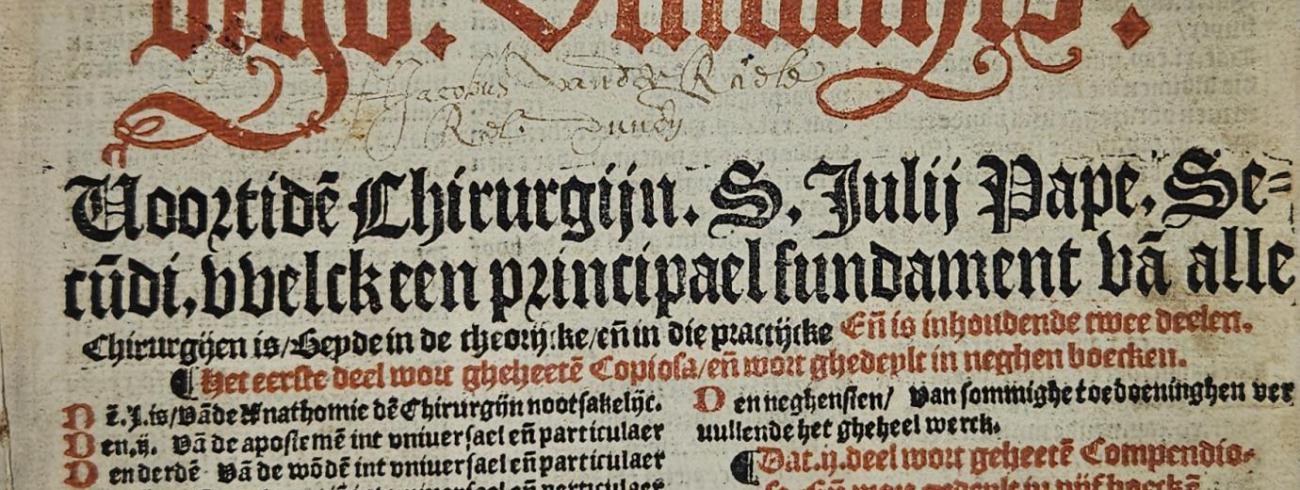 vigo. 
Jacobus vander
Voortidē Chirurgijn. S. Julij Pape. Se=
cūdi, vvelck een principael fundament vā alle
Chirurgijen is/Beyde in de theorijcke/eñ in die practijcke Eñ is inhoudende twee deelen.
¶ Het eerste deel wort gheheetē Copiosa/eñ wort ghedeylt in neghen boecken.
Dē.J.is/Vāde Anathomie dē Chirurgijn nootsakelijc.
Den.ij. Vā de apostemē int vniuersael eñ particulaer
Den derdē Vā de wōdē int vniuersael eñ particulaer
Den neghensten/ Van sommighe toedoeninghen ver
uullende het gheheel werck.
¶ Dat.ij.deel wort geheetē Compendio-